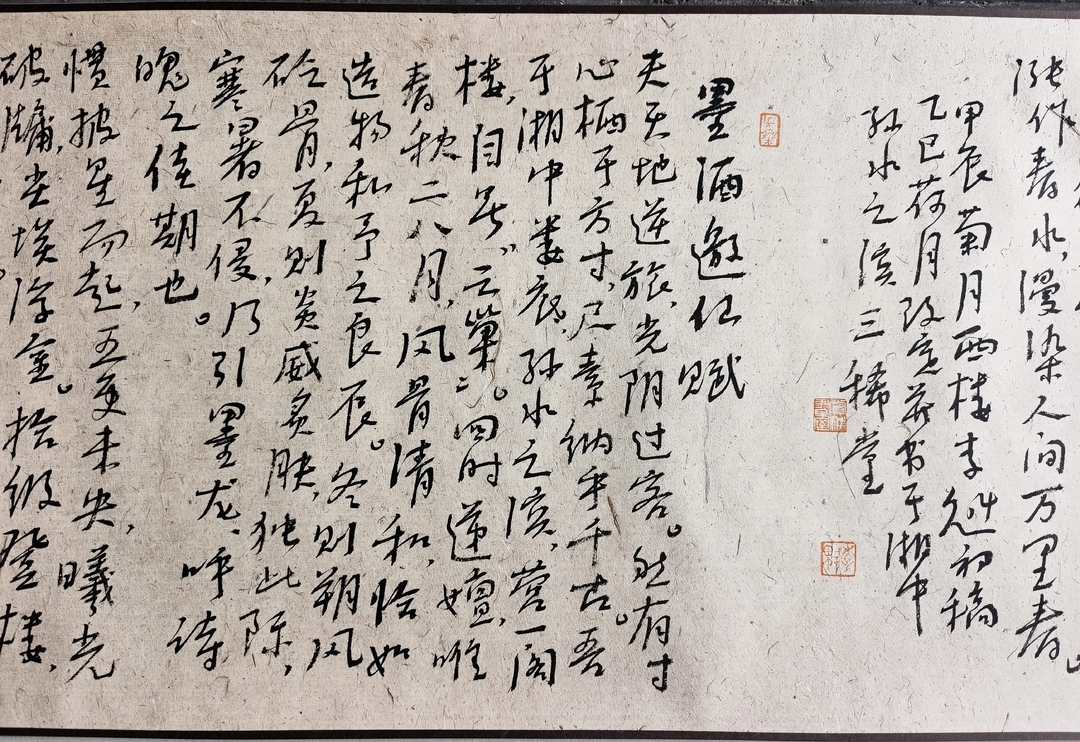 张作春水，漫染人间万里春
甲辰菊月西楼李
初稿
乙巳荷月改定并书于湘中
孙水之滨三稀堂
墨酒邀仙赋
夫天地逆旅，光阴过客。然有寸
心栖于方寸，尺素纳乎千古。吾
于湘中娄底，孙水之滨，营一阁
楼，自号“云巢”。四时递嬗，唯
春秋二八月，风骨清和，恰如
造物私予之良辰。冬则朔风
砭骨，夏则炎威炙肤，独此际，
寒暑不侵，乃引墨龙，呼诗
魄之佳期也。
惯披星而起，五更未央，曦光
破牖，尘埃浮金。拾级登楼，